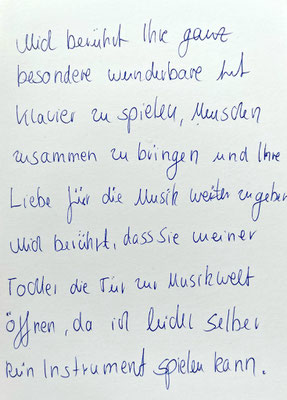 Mich berührt Ihre ganz
besondere wunderbare Art
Klavier zu spielen, Menschen
zusammen zu bringen und Ihre
Liebe für die Musik weiter zugeben
Mich berührt, dass Sie meiner
Tochter die Tür zur Musikwelt
öffnen, da ich leider selber
kein Instrument spielen kann.